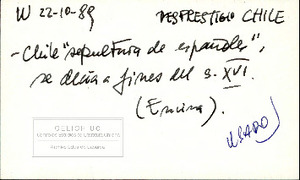 W 22-10-89 DESPRESTIGIO CHILE
- Chile "sepultura de españoles",
se decía a fines del s. XVI.
(Encina).
USADO
CELICH UC